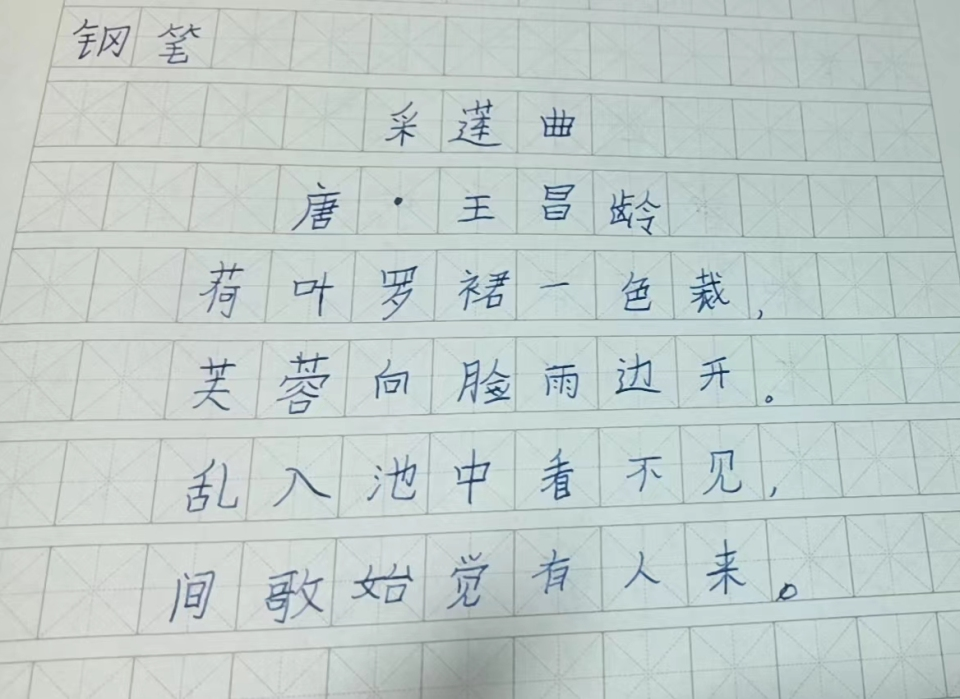 钢笔
采莲曲
唐·王昌龄
荷叶罗裙一色裁，
芙蓉向脸雨边开。
乱入池中看不见，
间歌始觉有人来。